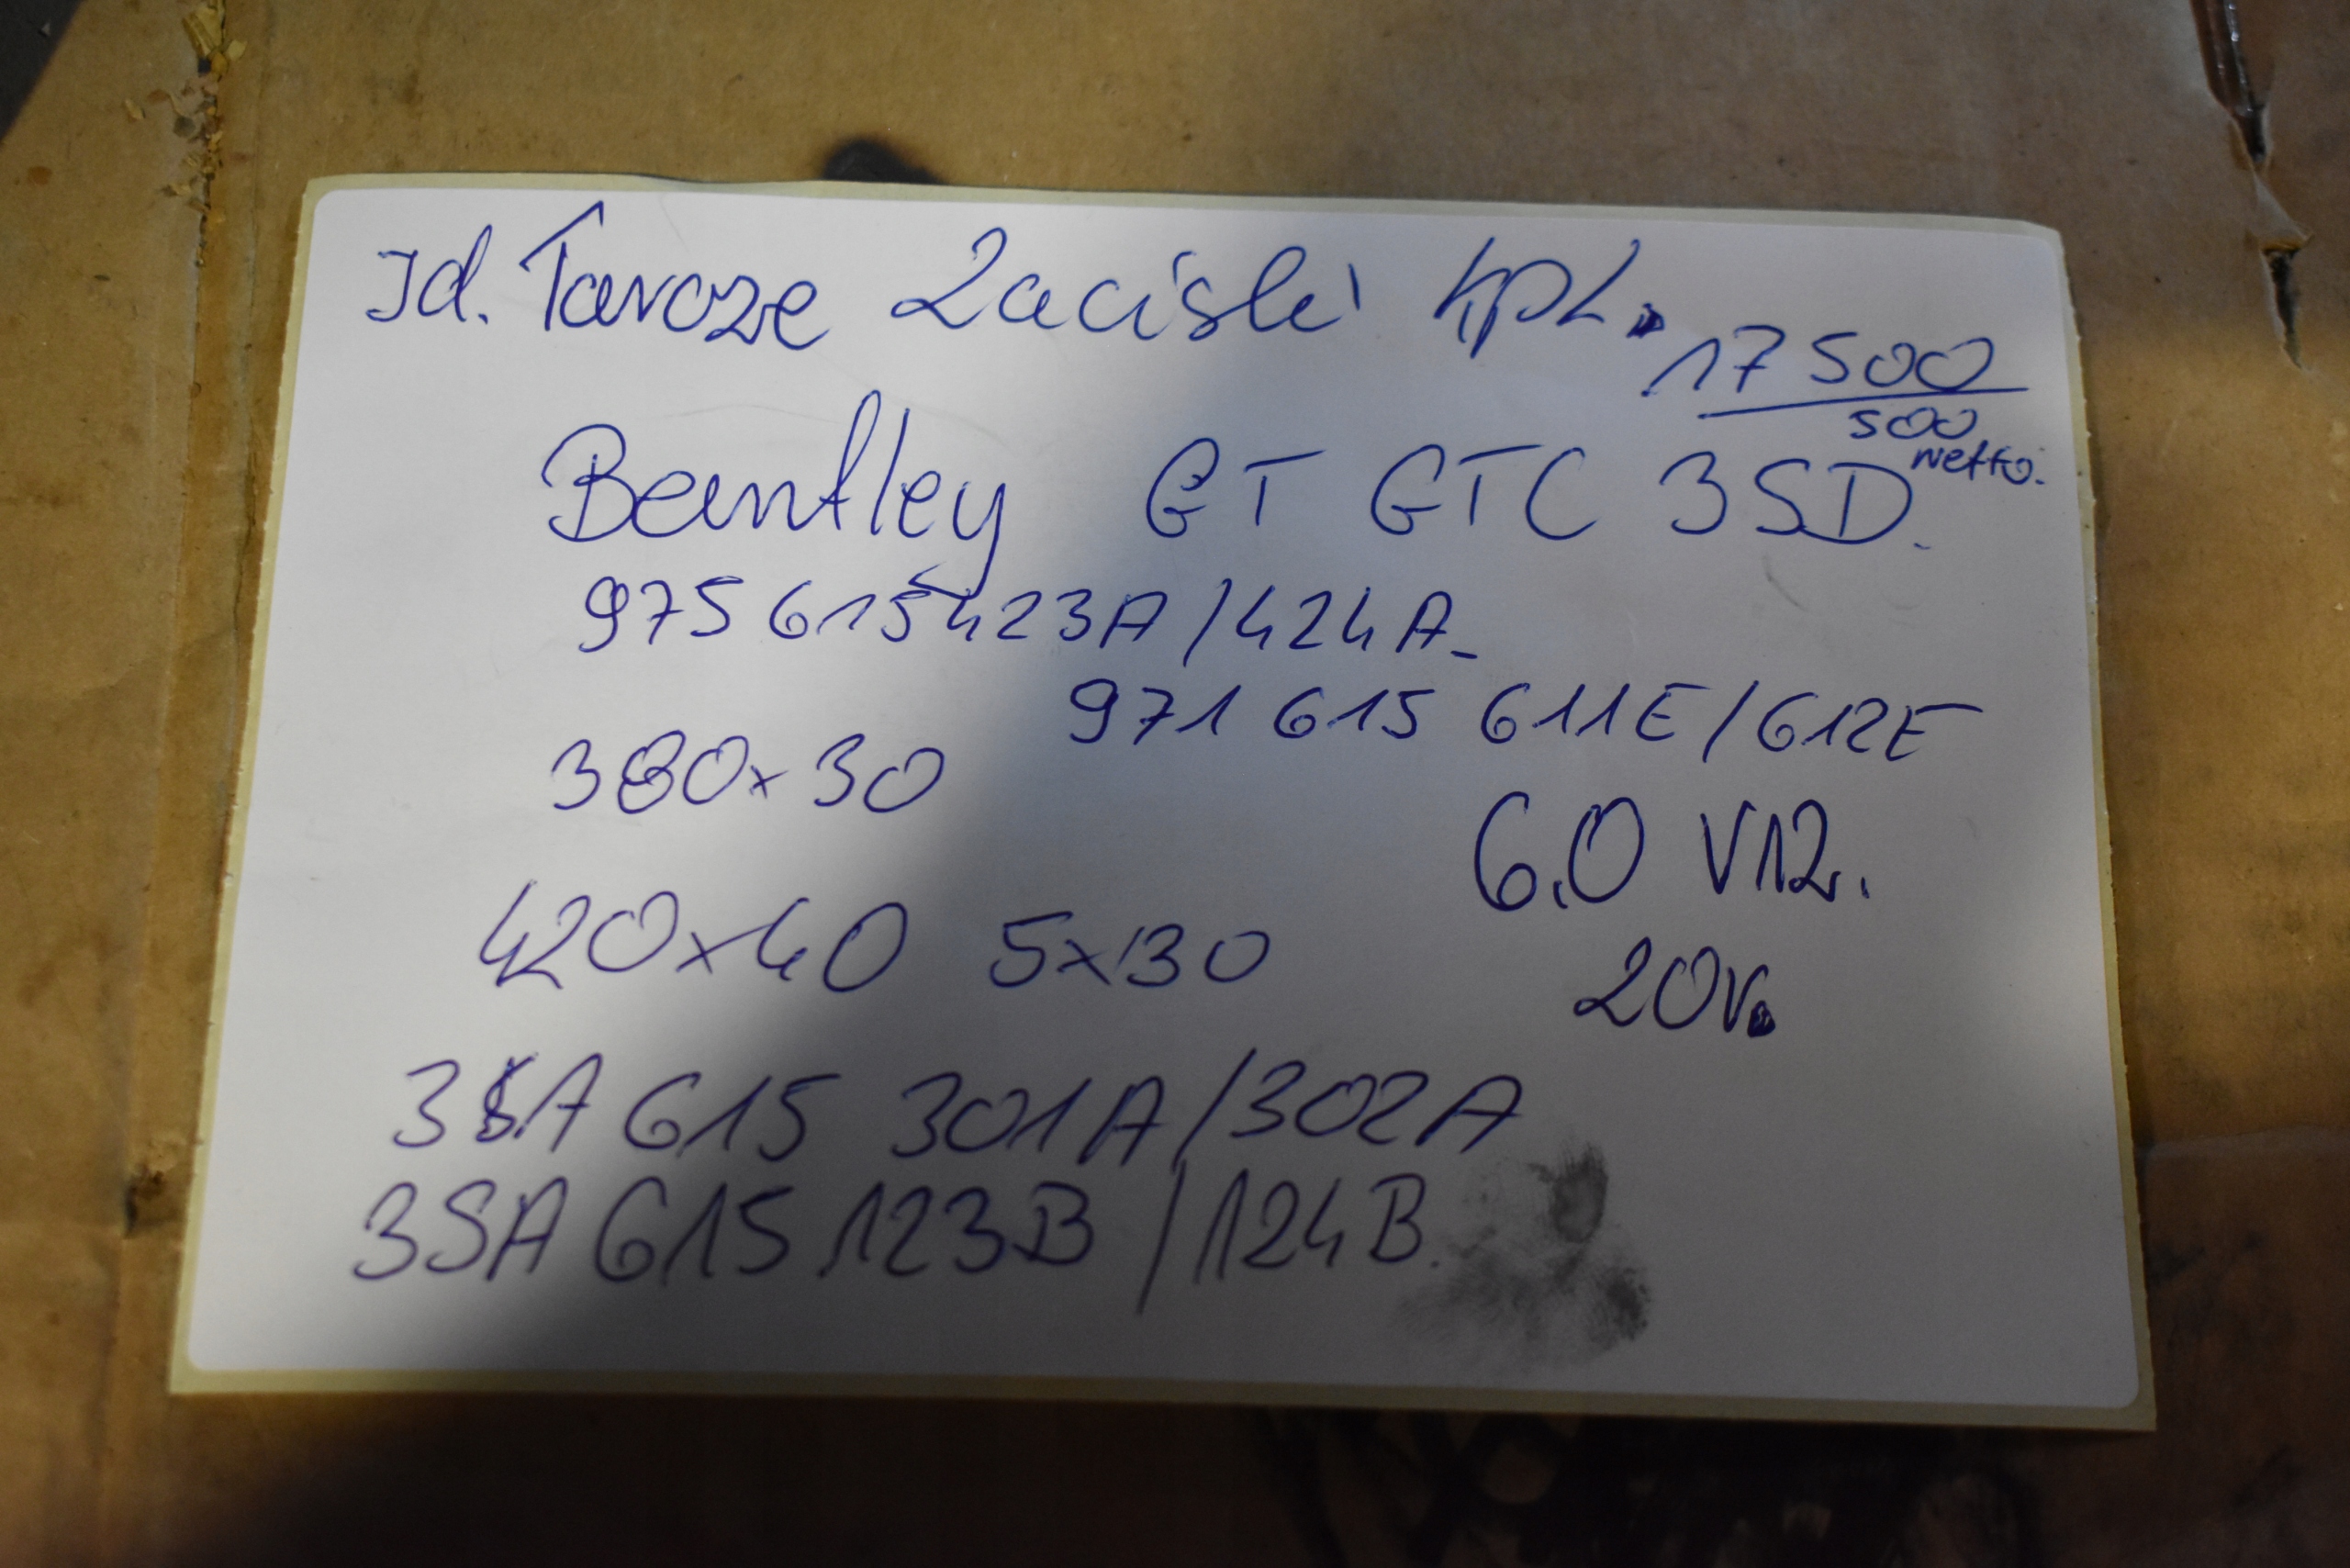 Id. Tarcze Zaciski kpl.
17 500
500
netto.
Bentley GT GTC 3SD.
975 615 423A/424A-
971 615 611E/612E
380x30
6.0 V12.
420x40 5x130
20r.
3SA 615 301A/302A
3SA 615 123B/124B.